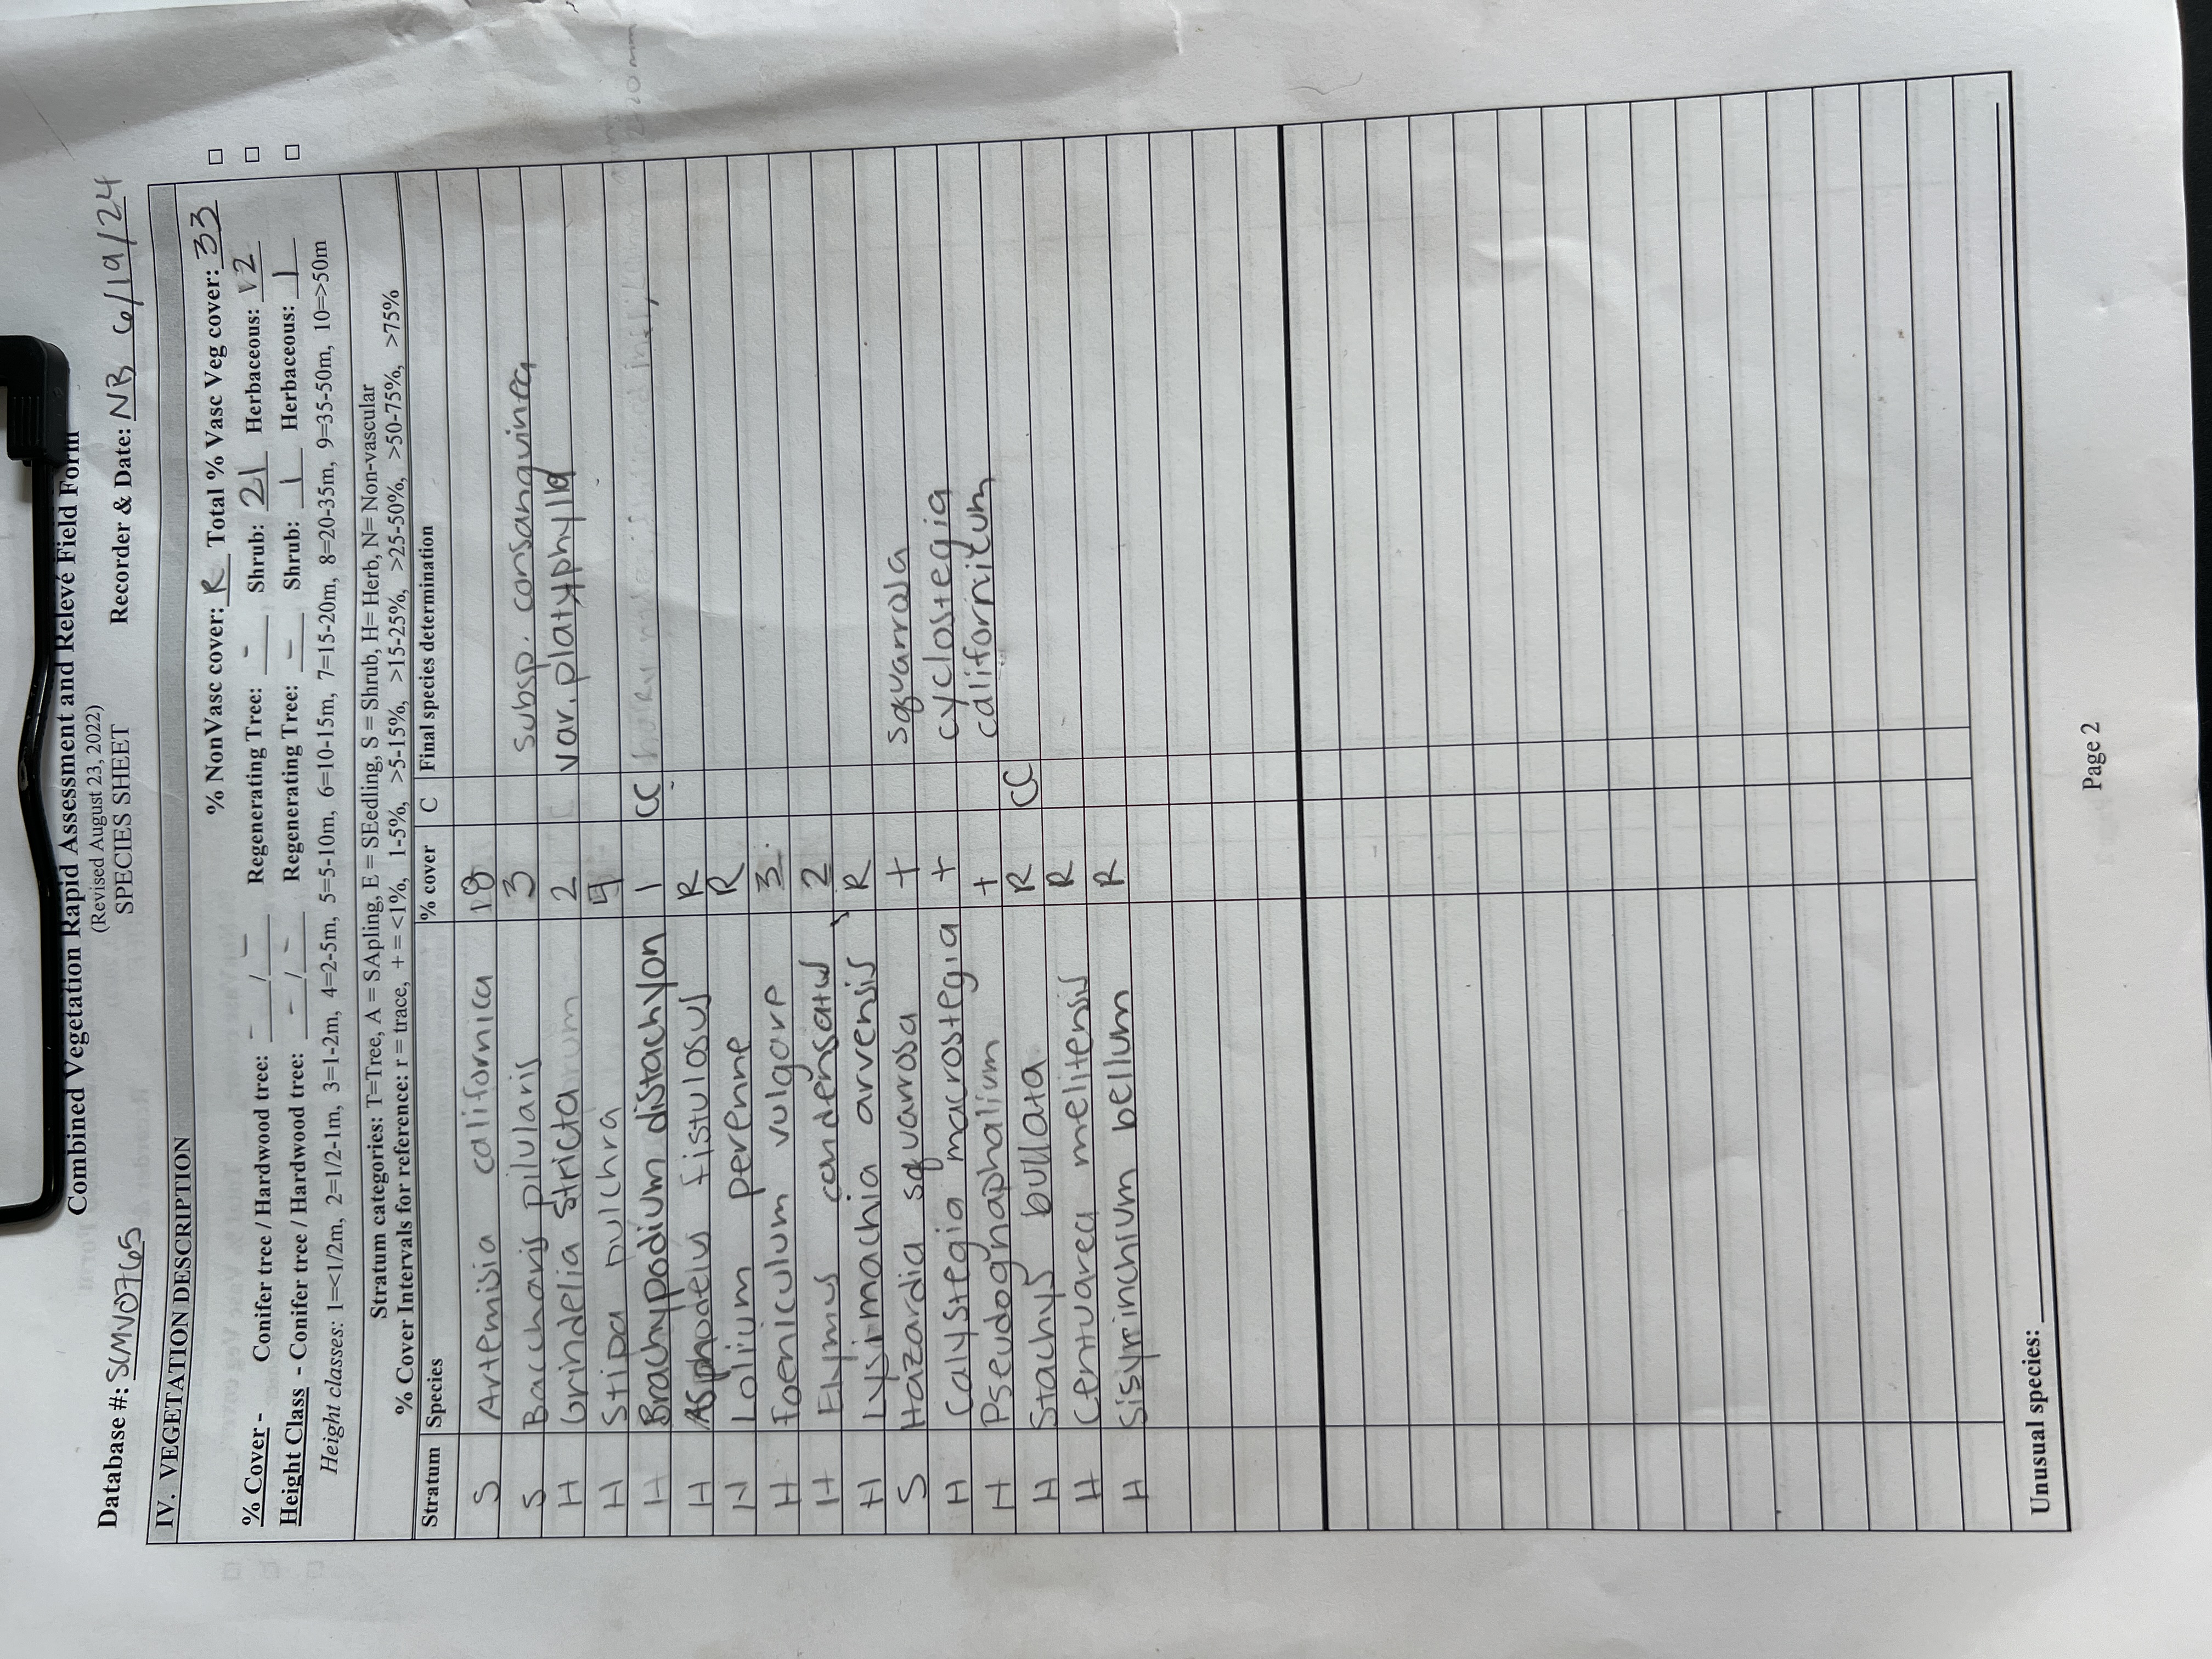 Combined Vegetation Rapid Assessment and Relevé Field Form
(Revised August 23, 2022)
SPECIES SHEET
Database #: SCMV0765 Recorder & Date: NB 6/19/24
IV. VEGETATION DESCRIPTION
% NonVasc cover: R Total % Vasc Veg cover: 33 □
% Cover - Conifer tree / Hardwood tree: - / - Regenerating Tree: - Shrub: 21 Herbaceous: 12 □
Height Class - Conifer tree / Hardwood tree: - / - Regenerating Tree: - Shrub: 1 Herbaceous: 1 □
Height classes: 1=<1/2m, 2=1/2-1m, 3=1-2m, 4=2-5m, 5=5-10m, 6=10-15m, 7=15-20m, 8=20-35m, 9=35-50m, 10=>50m
Stratum categories: T=Tree, A = SApling, E = SEedling, S = Shrub, H= Herb, N= Non-vascular
% Cover Intervals for reference: r = trace, + = <1%, 1-5%, >5-15%, >15-25%, >25-50%, >50-75%, >75%
Stratum Species % cover C Final species determination
S Artemisia californica 18
S Baccharis pilularis 3 subsp. consanguinea
H Grindelia stricta 2 var. platyphylla
H Stipa pulchra
H Brachypodium distachyon 1 CC
H Asphodelus fistulosus R
H Lolium perenne R
H Foeniculum vulgare 3
H Elymus condensatus 2
H Lysimachia arvensis R
S Hazardia squarrosa + squarrosa
H Calystegia macrostegia + cyclostegia
H Pseudognaphalium + californicum
H Stachys bullata R CC
H Centuarea melitensis R
H Sisyrinchium bellum R
Unusual species:
Page 2